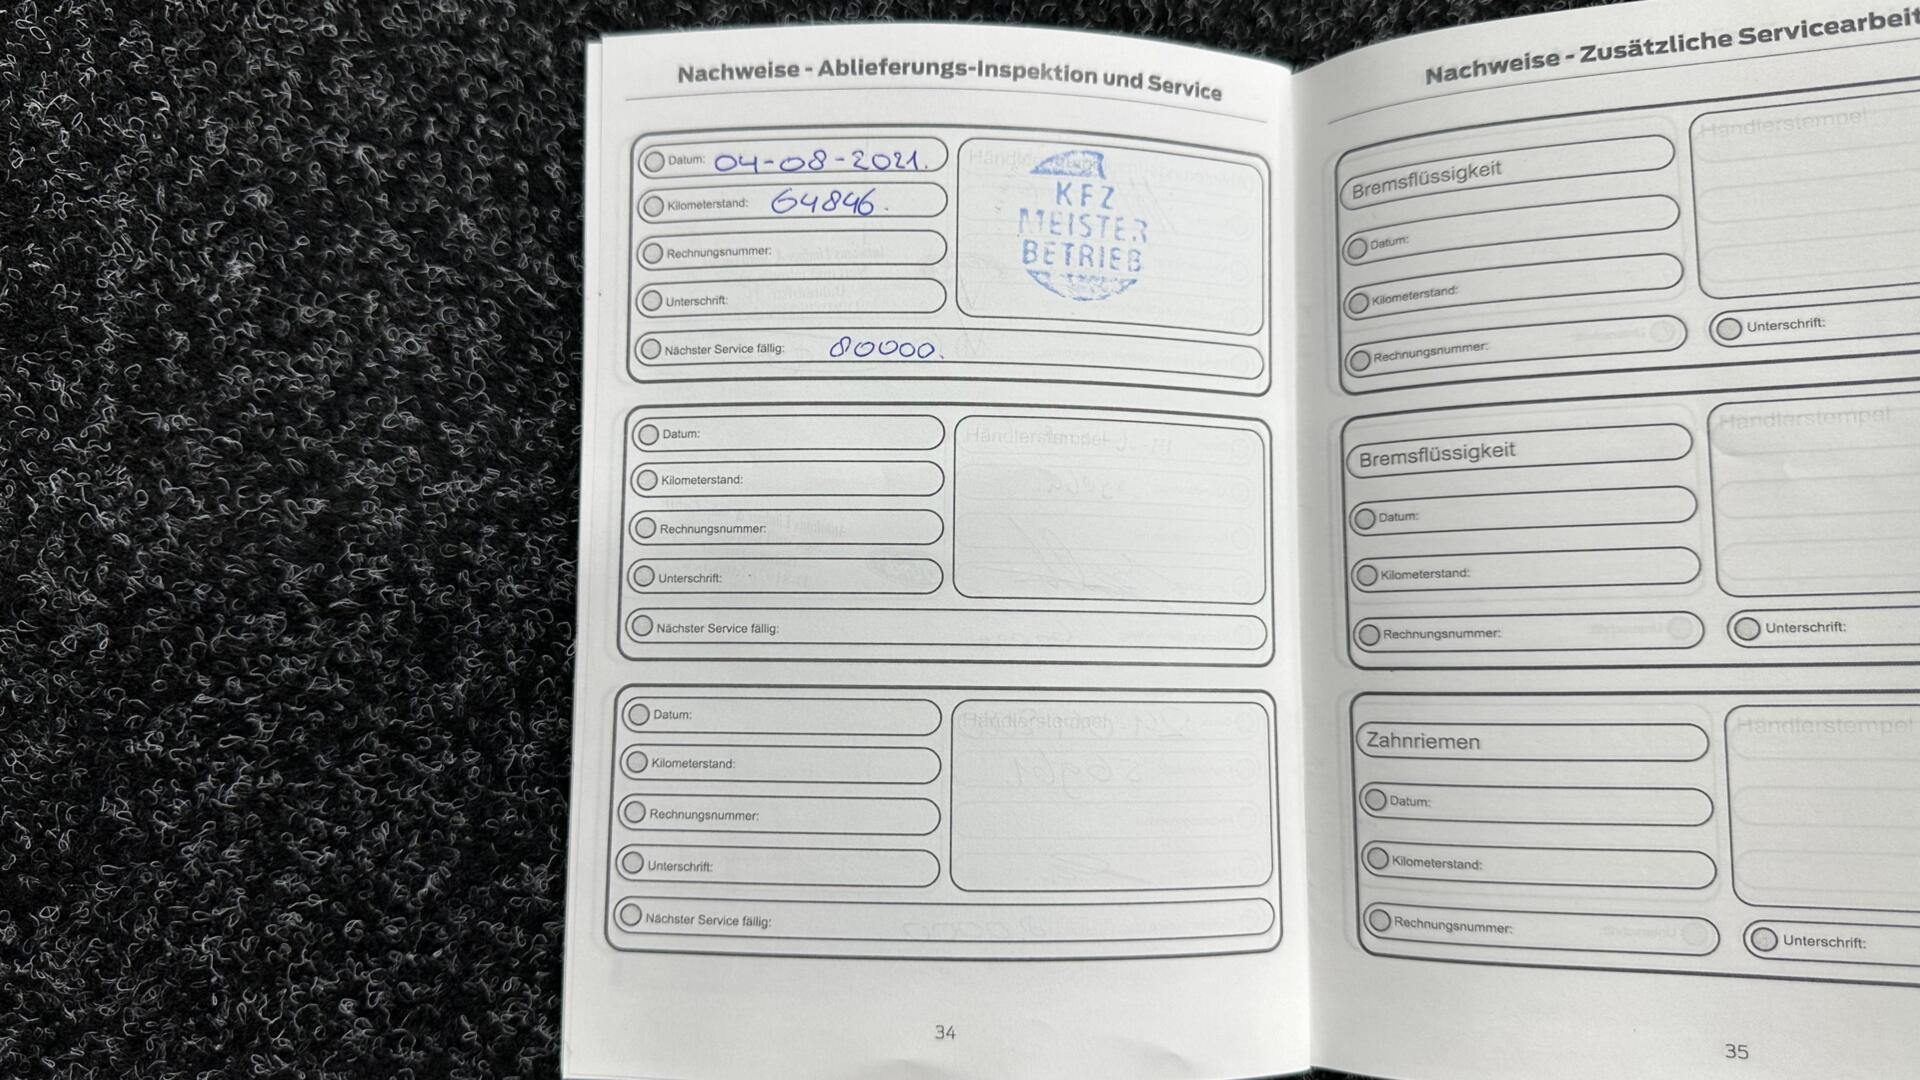 Nachweise - Ablieferungs-Inspektion und Service
Datum: 04-08-2021.
Kilometerstand: 64846.
Rechnungsnummer:
Unterschrift:
Nächster Service fällig: 80000.
KFZ
MEISTER
BETRIEB
Datum:
Kilometerstand:
Rechnungsnummer:
Unterschrift:
Nächster Service fällig:
Händlerstempel
Datum:
Kilometerstand:
Rechnungsnummer:
Unterschrift:
Nächster Service fällig:
Händlerstempel
34
Nachweise - Zusätzliche Servicearbeit
Bremsflüssigkeit
Datum:
Kilometerstand:
Rechnungsnummer:
Händlerstempel
Unterschrift:
Bremsflüssigkeit
Datum:
Kilometerstand:
Rechnungsnummer:
Händlerstempel
Unterschrift:
Zahnriemen
Datum:
Kilometerstand:
Rechnungsnummer:
Händlerstempel
Unterschrift:
35